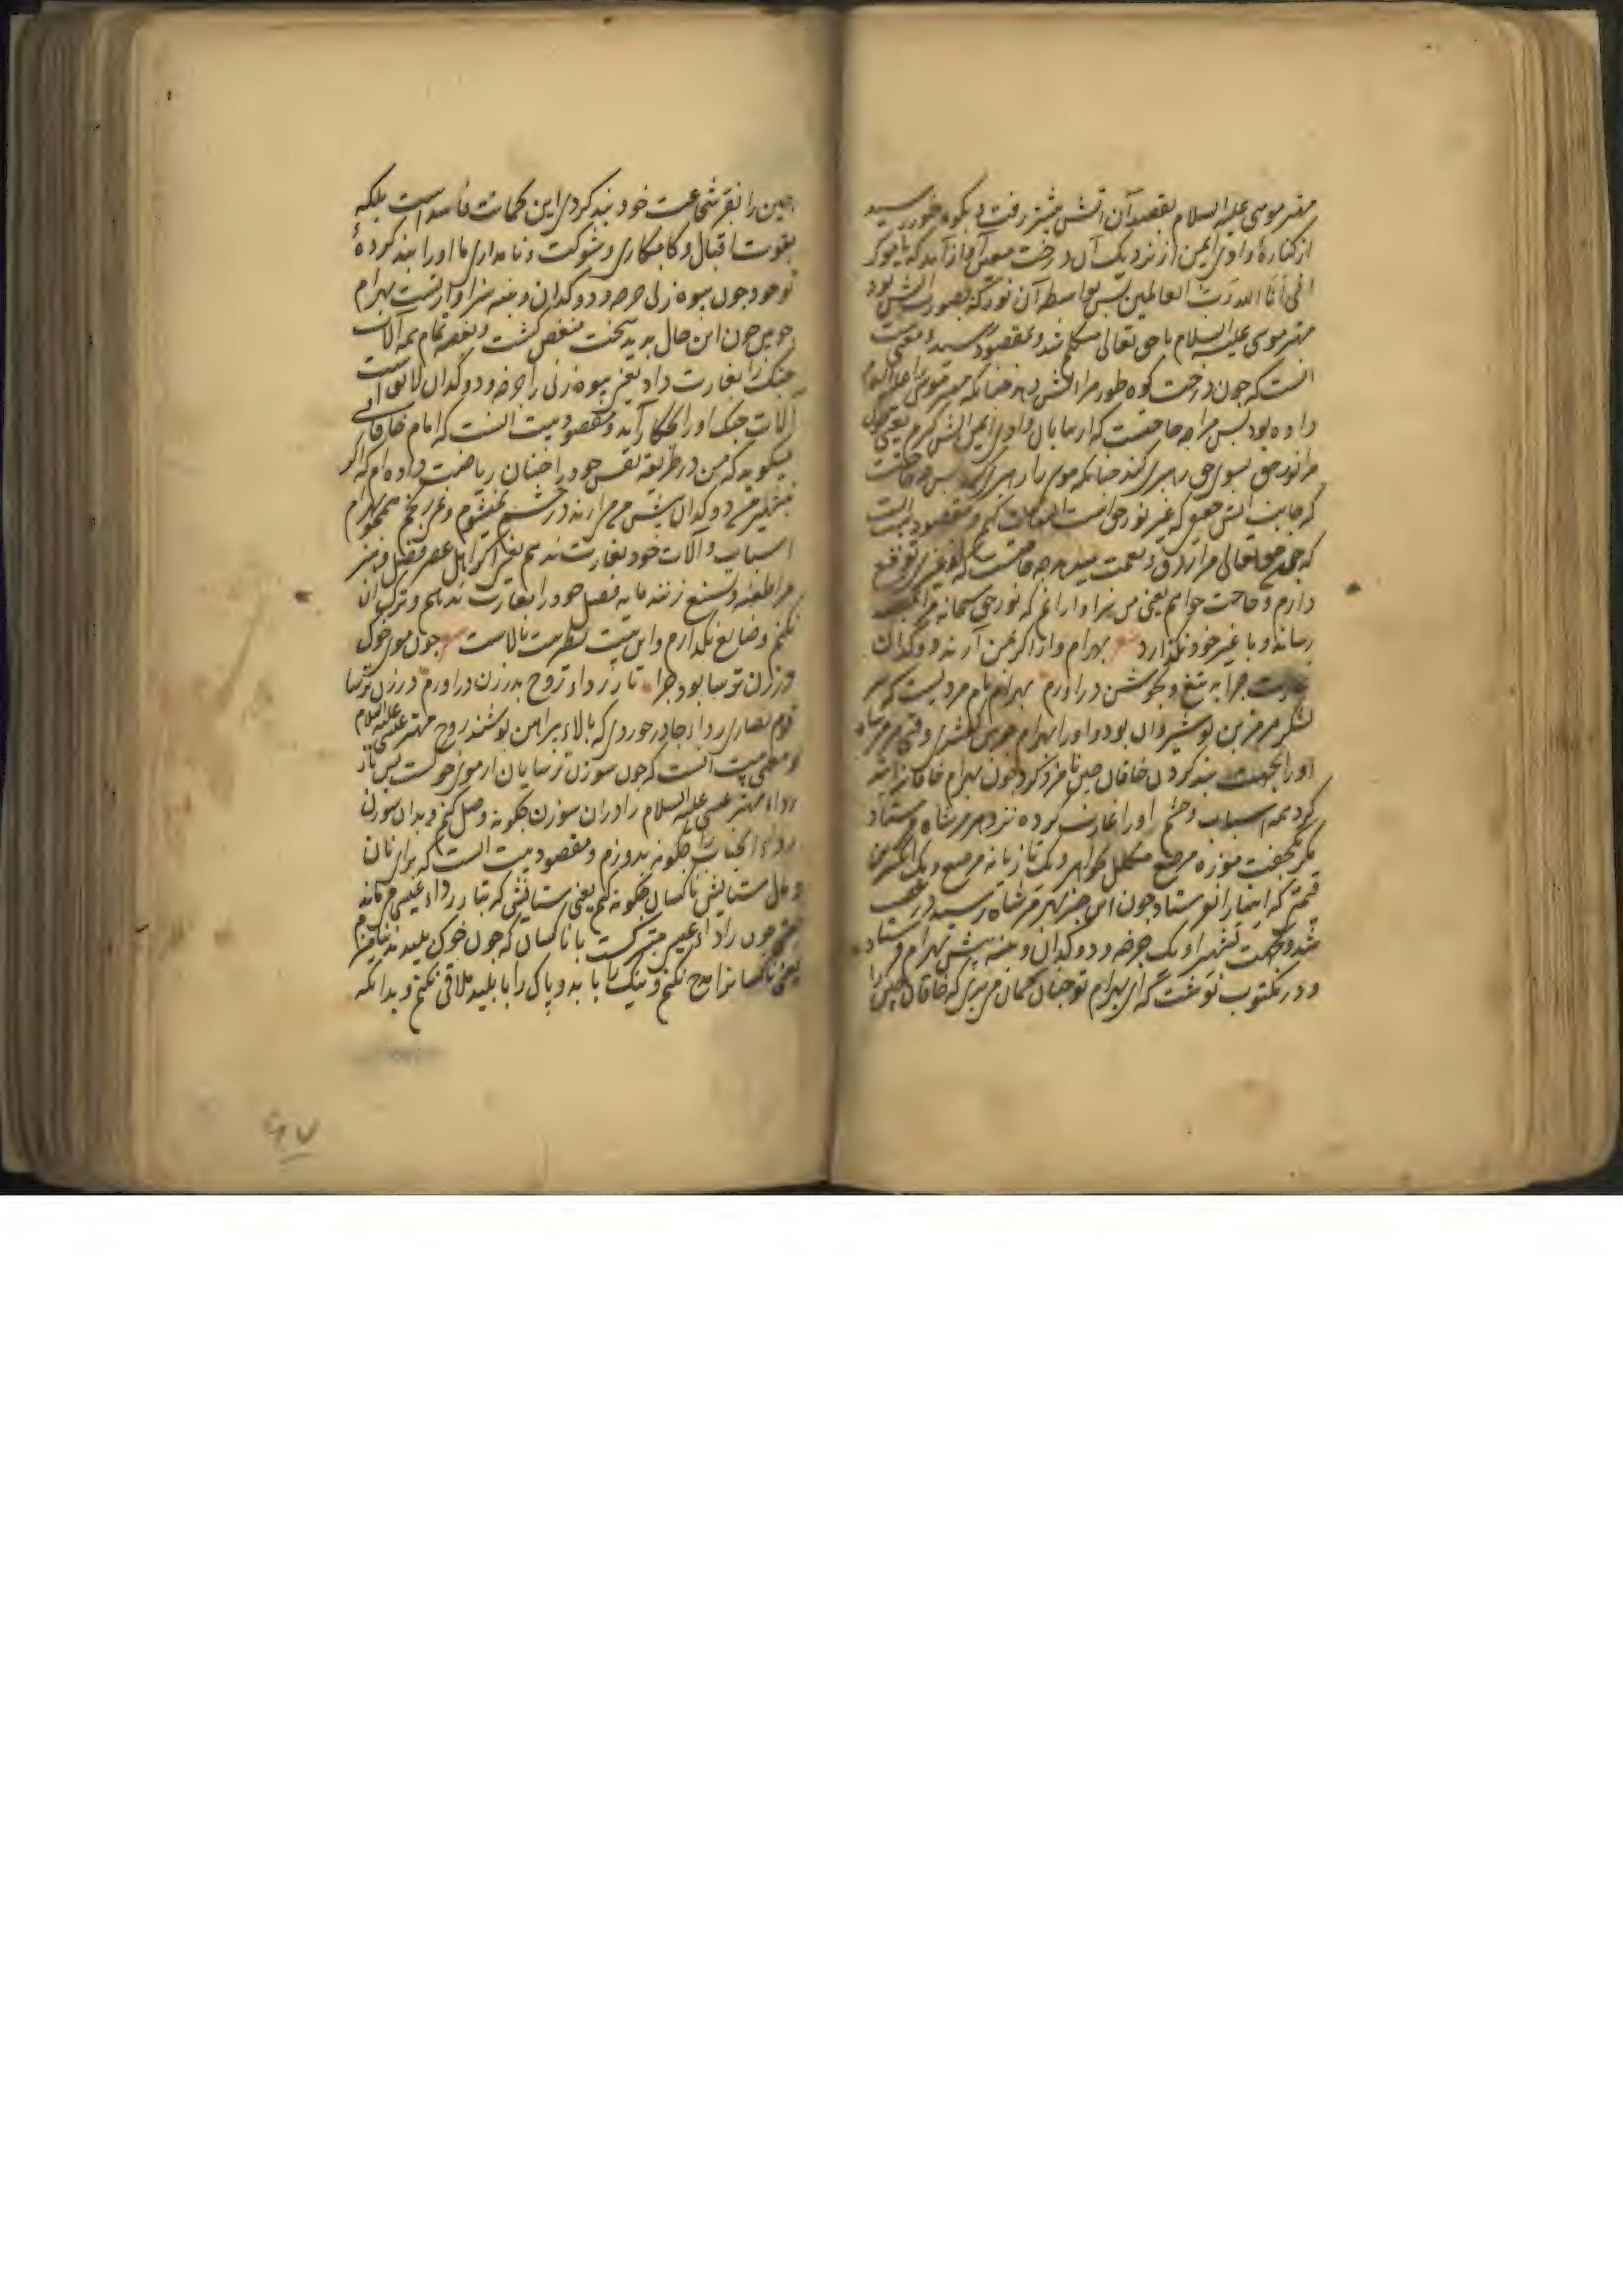 مهتر موسی علیه السلام بقصد آن آتش پیشتر رفت و بکوه طور رسید
از کنارهٔ وادی ایمن از نزدیک آن درخت آواز آمد که یا موسی
انی انا الله رب العالمین پس بواسطه آن نور که بصورت آتش بود
مهتر موسی علیه السلام با حق تعالی متکلم شد و بمقصود رسید و معنی بیت
انست که چون درخت کوه طور مرا آتش دهد چنانکه مهتر موسی را علیه السلام
داده بود پس مرا چه حاجتست که از بیابان وادی ایمن آتش گیرم یعنی چون
مرا نور حق بسوی حق راهبری کند چنانکه موسی را راهبری کرد پس چه حاجتست
که جانب آتش که غیر نور حق است التفات کنم و مقصود بیت انست
که چون حق تعالی مرا رزق و نعمت میدهد چه حاجتست که از غیری توقع
دارم و حاجت خواهم یعنی من سزاوار آنم که نور حق سبحانه مرا
رساند و با غیر خود نگذارد بهرام وار اگر بمن آرند دوکدان
غارت چرا به تیغ و بجوشن دراورم بهرام نام مردیست که سر
لشکر هرمز بن نوشیروان بود و او را بهرام چوبین گفتندی وقتی هرمز شاه
او را بجهت بند کردن خاقان چین نامزد کرد چون بهرام خاقان را بند
کرد همه اسباب و حشم او را غارت کرده نزد هرمز شاه فرستاد
مگر یکجفت موزه مرصع مکلل بجواهر و یک تازیانه مرصع و یک انگشترین
قیمتی که اینها را نفرستاد چون این خبر بهرمز شاه رسید در غضب
شد و بجهت تعزیر او یک چرخه و دوکدان و پنبه پیش بهرام فرستاد
و در مکتوب نوشت که ای بهرام تو چنان گمان مبری که خاقان چین را
چین را بقوت شجاعت خود بند کردی این گمانت فاسد است بلکه
بقوت اقبال و کامکاری و شوکت و نامداری ما او را بند کردهٔ
تو خود چون بیوه زنی چرخه و دوکدان و پنبه سزاوار تست بهرام
چوبین چون این حال بدید سخت منغص گشت و بغصه تمام همه آلات
جنگ را بغارت داد یعنی بیوه زنی را چرخه و دوکدان لایق است
آلات جنگ او را بچکار آید و مقصود بیت انست که امام خاقانی
میگوید که من در طریقه نفس خود را چنان ریاضت داده ام که اگر
دوکدان پیش من آرند در خشم نمیشوم و نمیرنجم همچو بهرام
اسباب و آلات خود بغارت ندهم یعنی اگر اهل عصر فضل و هنر
مرا طعنه و تشنیع زنند مایه فضل خود را بغارت ندهم و ترک آن
نکنم و ضایع نگذارم و این بیت نظیر بیت بالاست چون موی خوک
در زن ترسا بود چرا تار رداء روح بدرزن دراورم درزن ترسا
قوم نصاری رداء چادر خوردی که بالاء پیراهن پوشند روح مهتر عیسی علیه السلام
و معنی بیت انست که چون سوزن ترسایان از موی خوکست پس تار
رداء مهتر عیسی علیه السلام را در آن سوزن چگونه وصل کنم و بدان سوزن
رداء انجناب را چگونه بدوزم و مقصود بیت انست که برای نان
و مال ستایش ناکسان چگونه کنم یعنی ستایشی که بتار رداء عیسی می ماند
یعنی چون رداء عیسی متبرکست با ناکسان که چون خوک پلیدند نیامیزم
یعنی ناکسانرا مدح نکنم و نیک را با بد و پاک را با پلید ملاقی نکنم و بدانکه
۶۷